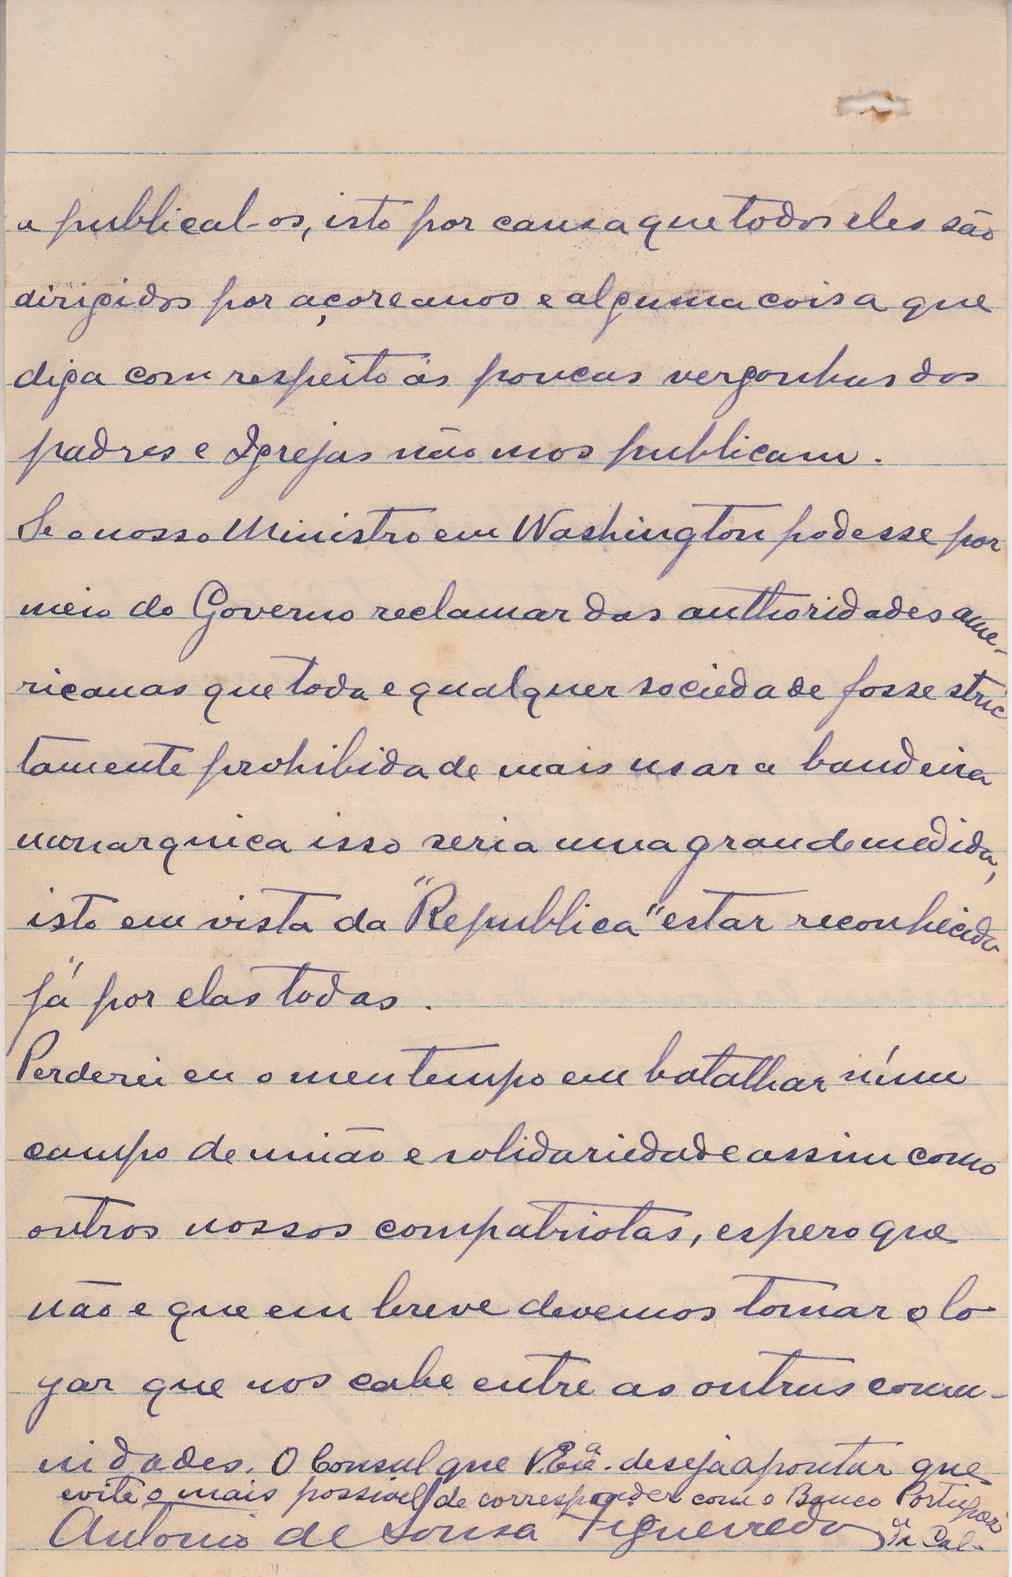 a publical-os, isto por causa que todos eles são
dirigidos por açoreanos e alguma coisa que
diga com respeito ás poucas vergonhas dos
padres e Igrejas não nos publicam.
Se o nosso Ministro em Washington podesse por
meio do Governo reclamar das authoridades ame-
ricanas que toda e qualquer sociedade fosse stric
tamente prohibida de mais usar a bandeira
monarquica isso seria uma grande medida,
isto em vista da "Republica" estar reconhecida
já por elas todas.
Perderei eu o meu tempo em batalhar n'um
campo de união e solidariedade assim como
outros nossos compatriotas, espero que
não e que em breve devemos tomar o lo
gar que nos cabe entre as outras comu-
nidades. O Consul que V. Exª. deseja apontar que
evite o mais possivel de corresponder com o Banco Portuguez
de Cal.
Antonio de Sousa Figueiredo